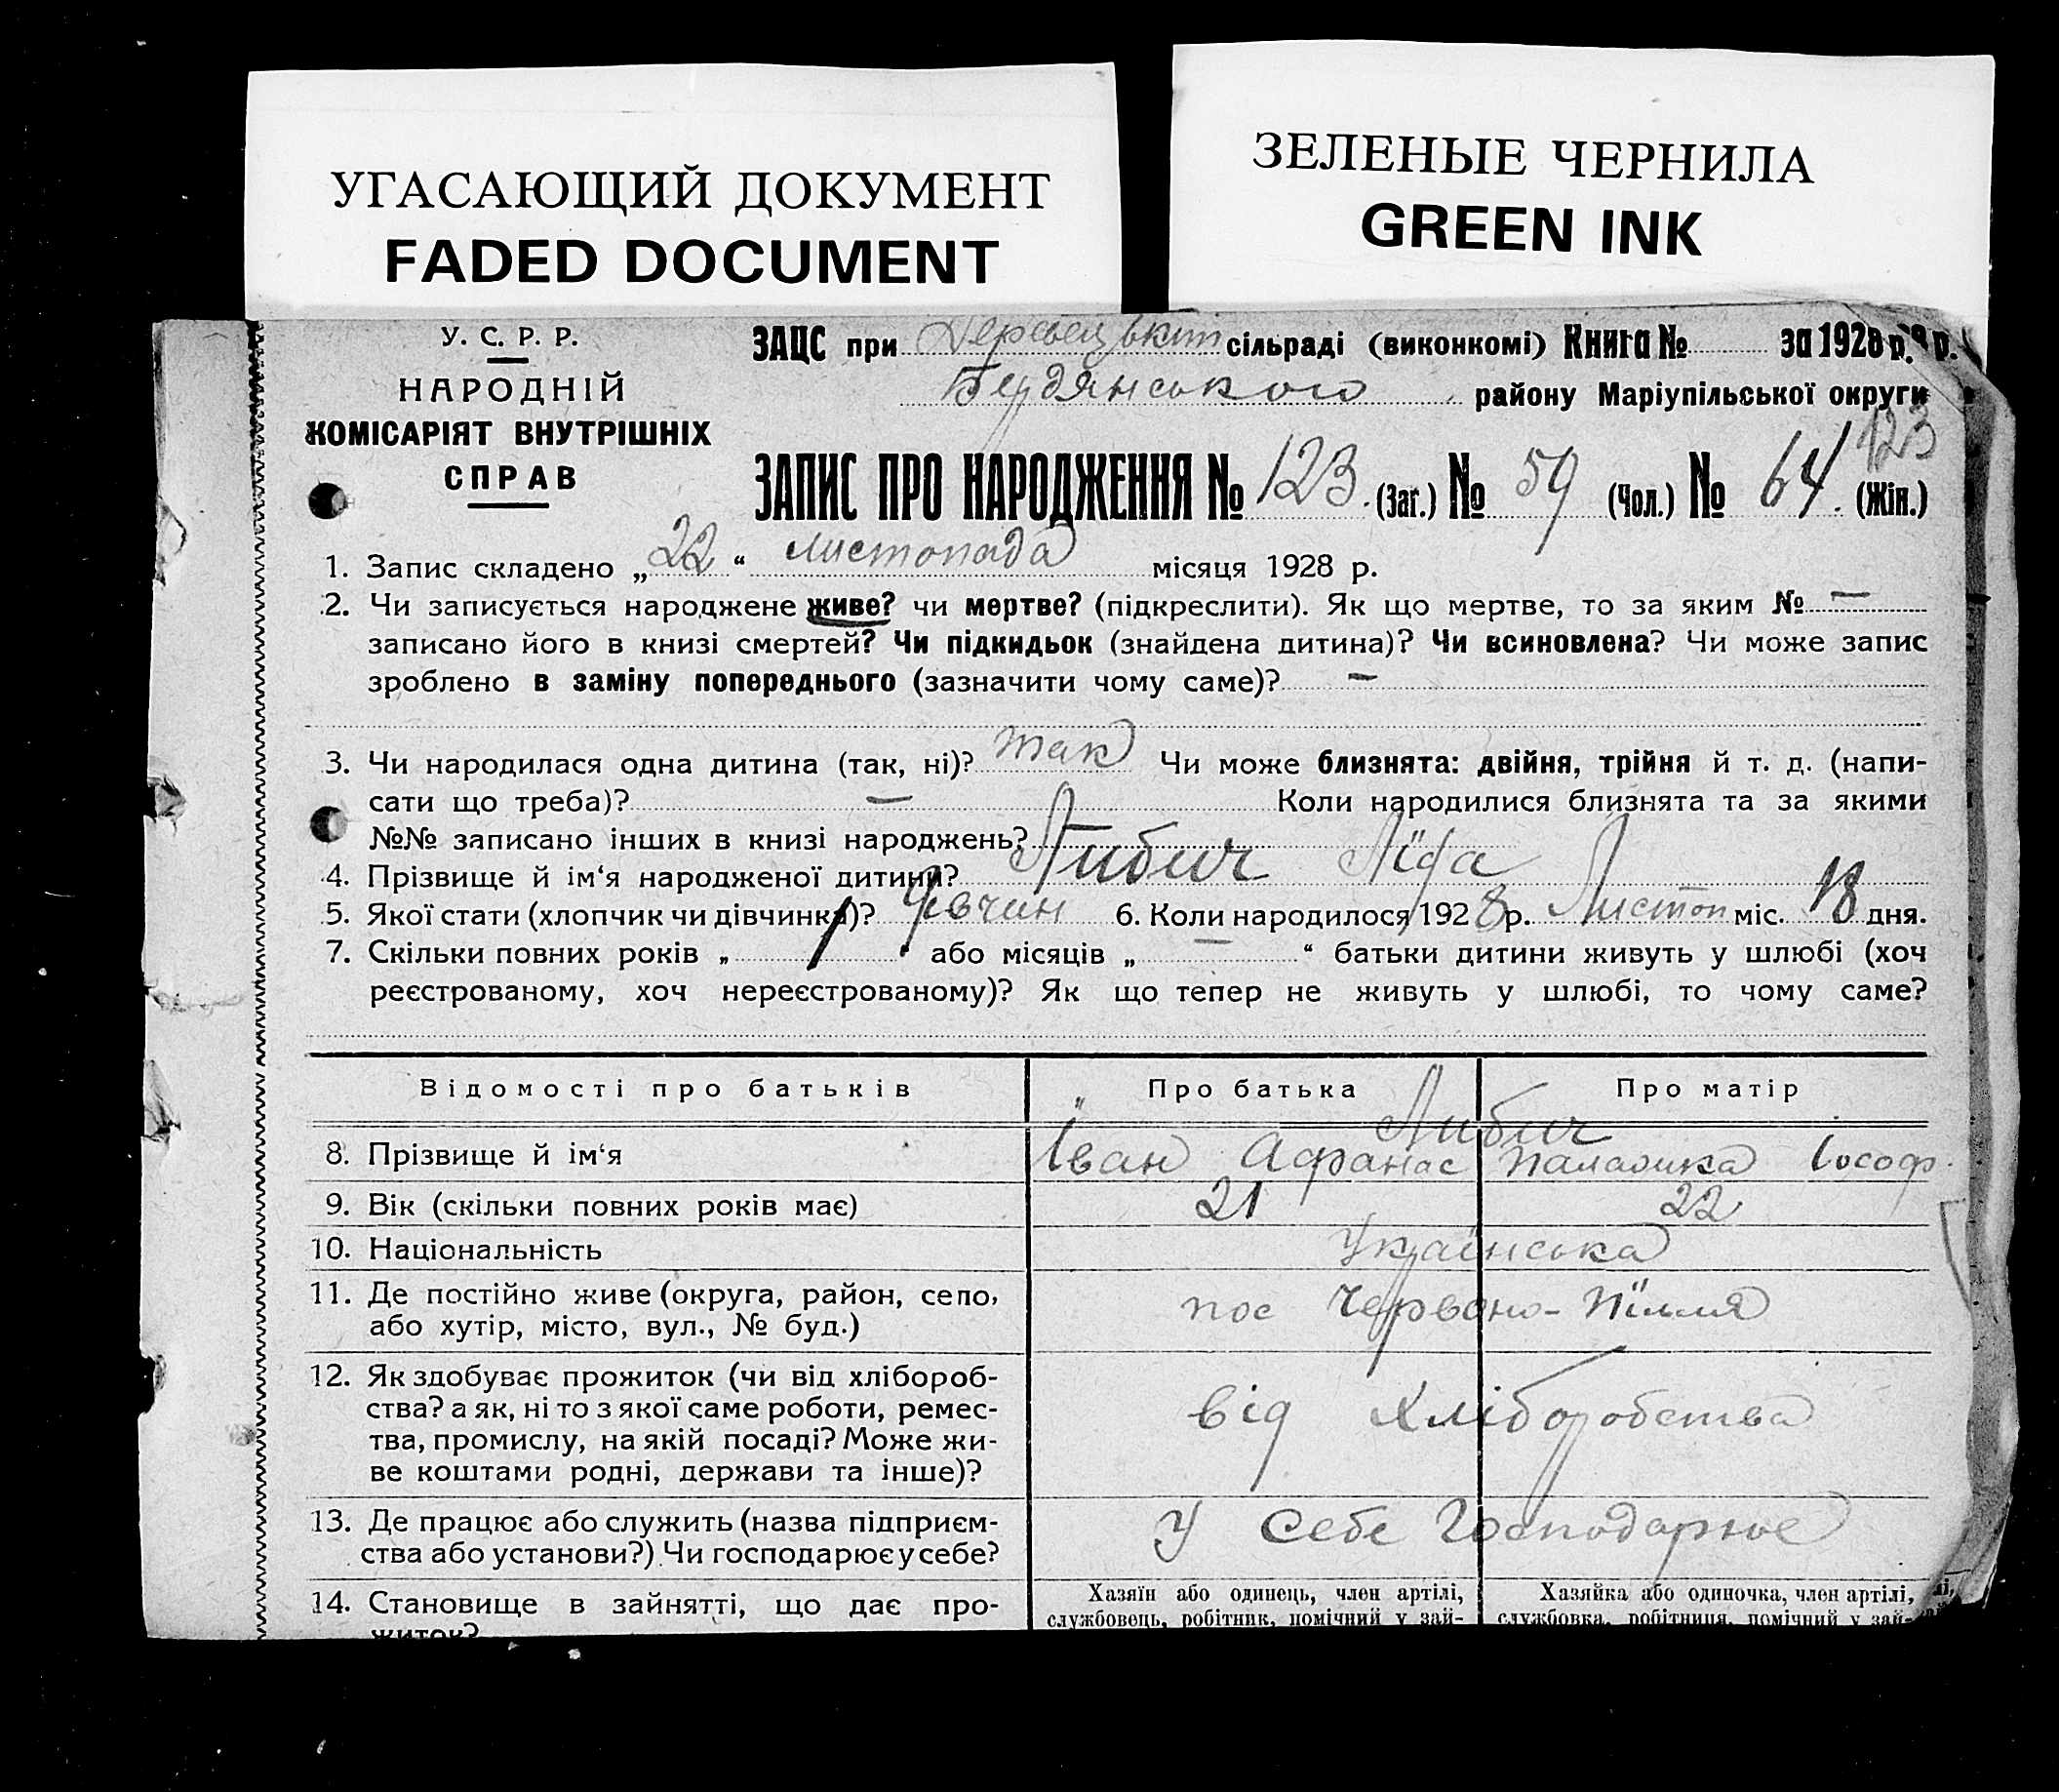 УГАСАЮЩИЙ ДОКУМЕНТ
FADED DOCUMENT
ЗЕЛЕНЫЕ ЧЕРНИЛА
GREEN INK
У. С. Р. Р.
НАРОДНІЙ
КОМІСАРІЯТ ВНУТРІШНІХ
СПРАВ
ЗАЦС при сільраді (виконкомі) Книга № за 1928 р.
Бердянського району Маріупільської округи
123
ЗАПИС ПРО НАРОДЖЕННЯ № 123. (Заг.) № 59 (Чол.) № 64. (Жін.)
1. Запис складено „ 22 “ листопада місяця 1928 р.
2. Чи записується народжене живе? чи мертве? (підкреслити). Як що мертве, то за яким № —
записано його в книзі смертей? Чи підкидьок (знайдена дитина)? Чи всиновлена? Чи може запис
зроблено в заміну попереднього (зазначити чому саме)? —
3. Чи народилася одна дитина (так, ні)? так Чи може близнята: двійня, трійня й т. д. (напи-
сати що треба)? — Коли народилися близнята та за якими
№№ записано інших в книзі народжень?
4. Прізвище й ім‘я народженої дитини? Либич Ліда
5. Якої стати (хлопчик чи дівчинка)? Дівчин 6. Коли народилося 1928 р. Листоп міс. 18 дня.
7. Скільки повних років „ 1 “ або місяців „ — “ батьки дитини живуть у шлюбі (хоч
реєстрованому, хоч нереєстрованому)? Як що тепер не живуть у шлюбі, то чому саме?
Відомості про батьків Про батька Про матір
Либич
8. Прізвище й ім‘я Іван Афанас Палажка Іософ.
9. Вік (скільки повних років має) 21 22
10. Національність Українська
11. Де постійно живе (округа, район, село,
або хутір, місто, вул., № буд.) пос Червоно-Пілля
12. Як здобуває прожиток (чи від хлібороб-
ства? а як, ні то з якої саме роботи, ремес-
тва, промислу, на якій посаді? Може жи-
ве коштами родні, держави та інше)? від Хліборобства
13. Де працює або служить (назва підприєм-
ства або установи?) Чи господарює у себе? У Себе Господарює
14. Становище в зайнятті, що дає про-
житок?
Хазяїн або одинець, член артілі,
службовець, робітник, помічний у зай-
Хазяйка або одиночка, член артілі,
службовка, робітниця, помічний у зай-